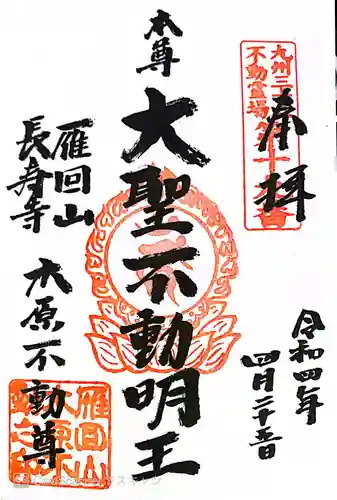 奉拝
九州三
不動霊場
十
番
令和四年
四月二十五日
本尊
大聖不動明王
雁回山
長寿寺
木原不動尊
雁回山
木原不